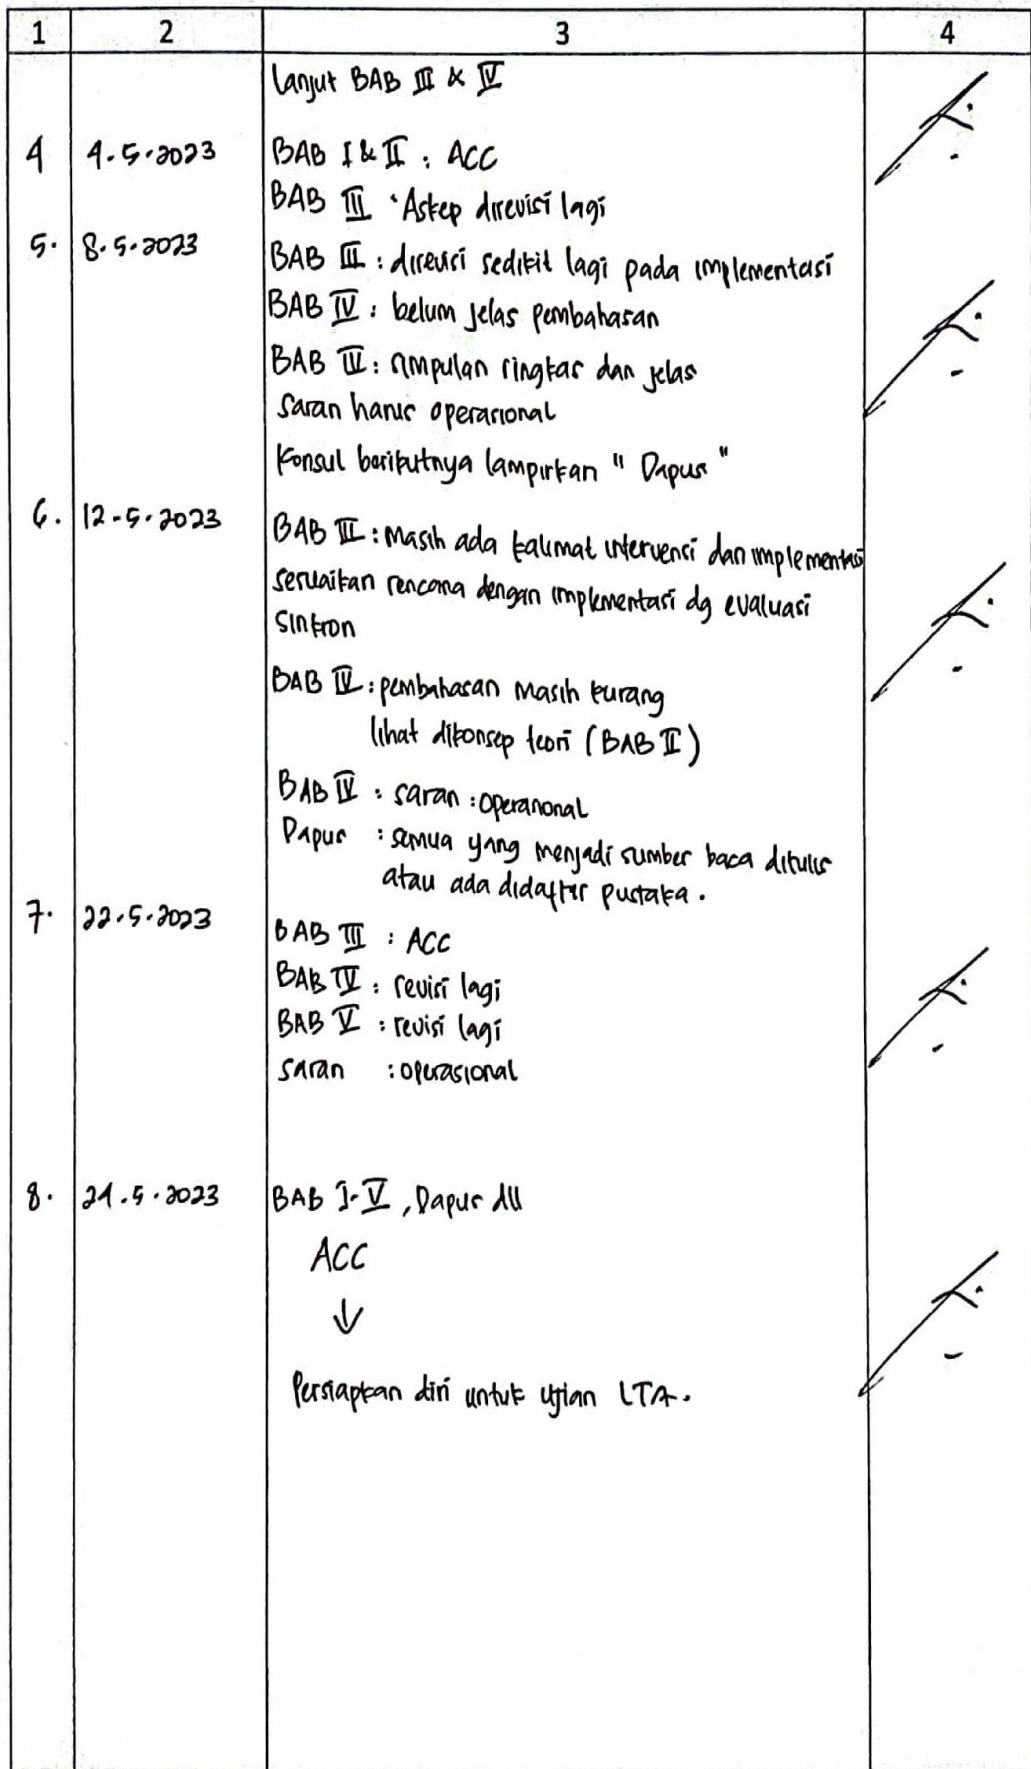 1 2 3 4
lanjut BAB III & IV
4 4-5-2023 BAB I & II : ACC
BAB III : Askep direvisi lagi
5. 8.5.2023 BAB III : direvisi sedikit lagi pada implementasi
BAB IV : belum jelas pembahasan
BAB : simpulan ringkas dan jelas
Saran harus operasional
Konsul berikutnya lampirkan " Dapus "
6. 12-5-2023 BAB III : Masih ada kalimat intervensi dan implementasi
sesuaikan rencana dengan implementasi dg evaluasi
sinkron
BAB IV : pembahasan masih kurang
lihat dikonsep teori (BAB II)
BAB IV : saran : operasional
Dapus : semua yang menjadi sumber baca ditulis
atau ada didaftar pustaka.
7. 22.5.2023 BAB III : ACC
BAB IV : revisi lagi
BAB V : revisi lagi
saran : operasional
8. 24.5.2023 BAB I-V, Dapus dll
ACC
↓
Persiapkan diri untuk ujian LTA.